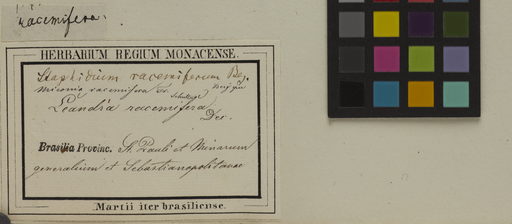 racemifera.
HERBARIUM REGIUM MONACENSE.
Staphidium racemiferum
Miconia racemifera
Leandra racemifera
Dec.
Brasilia Provinc. St. Pauli et Minarum
generalium et Sebastianopolitanae
Martii iter brasiliense.